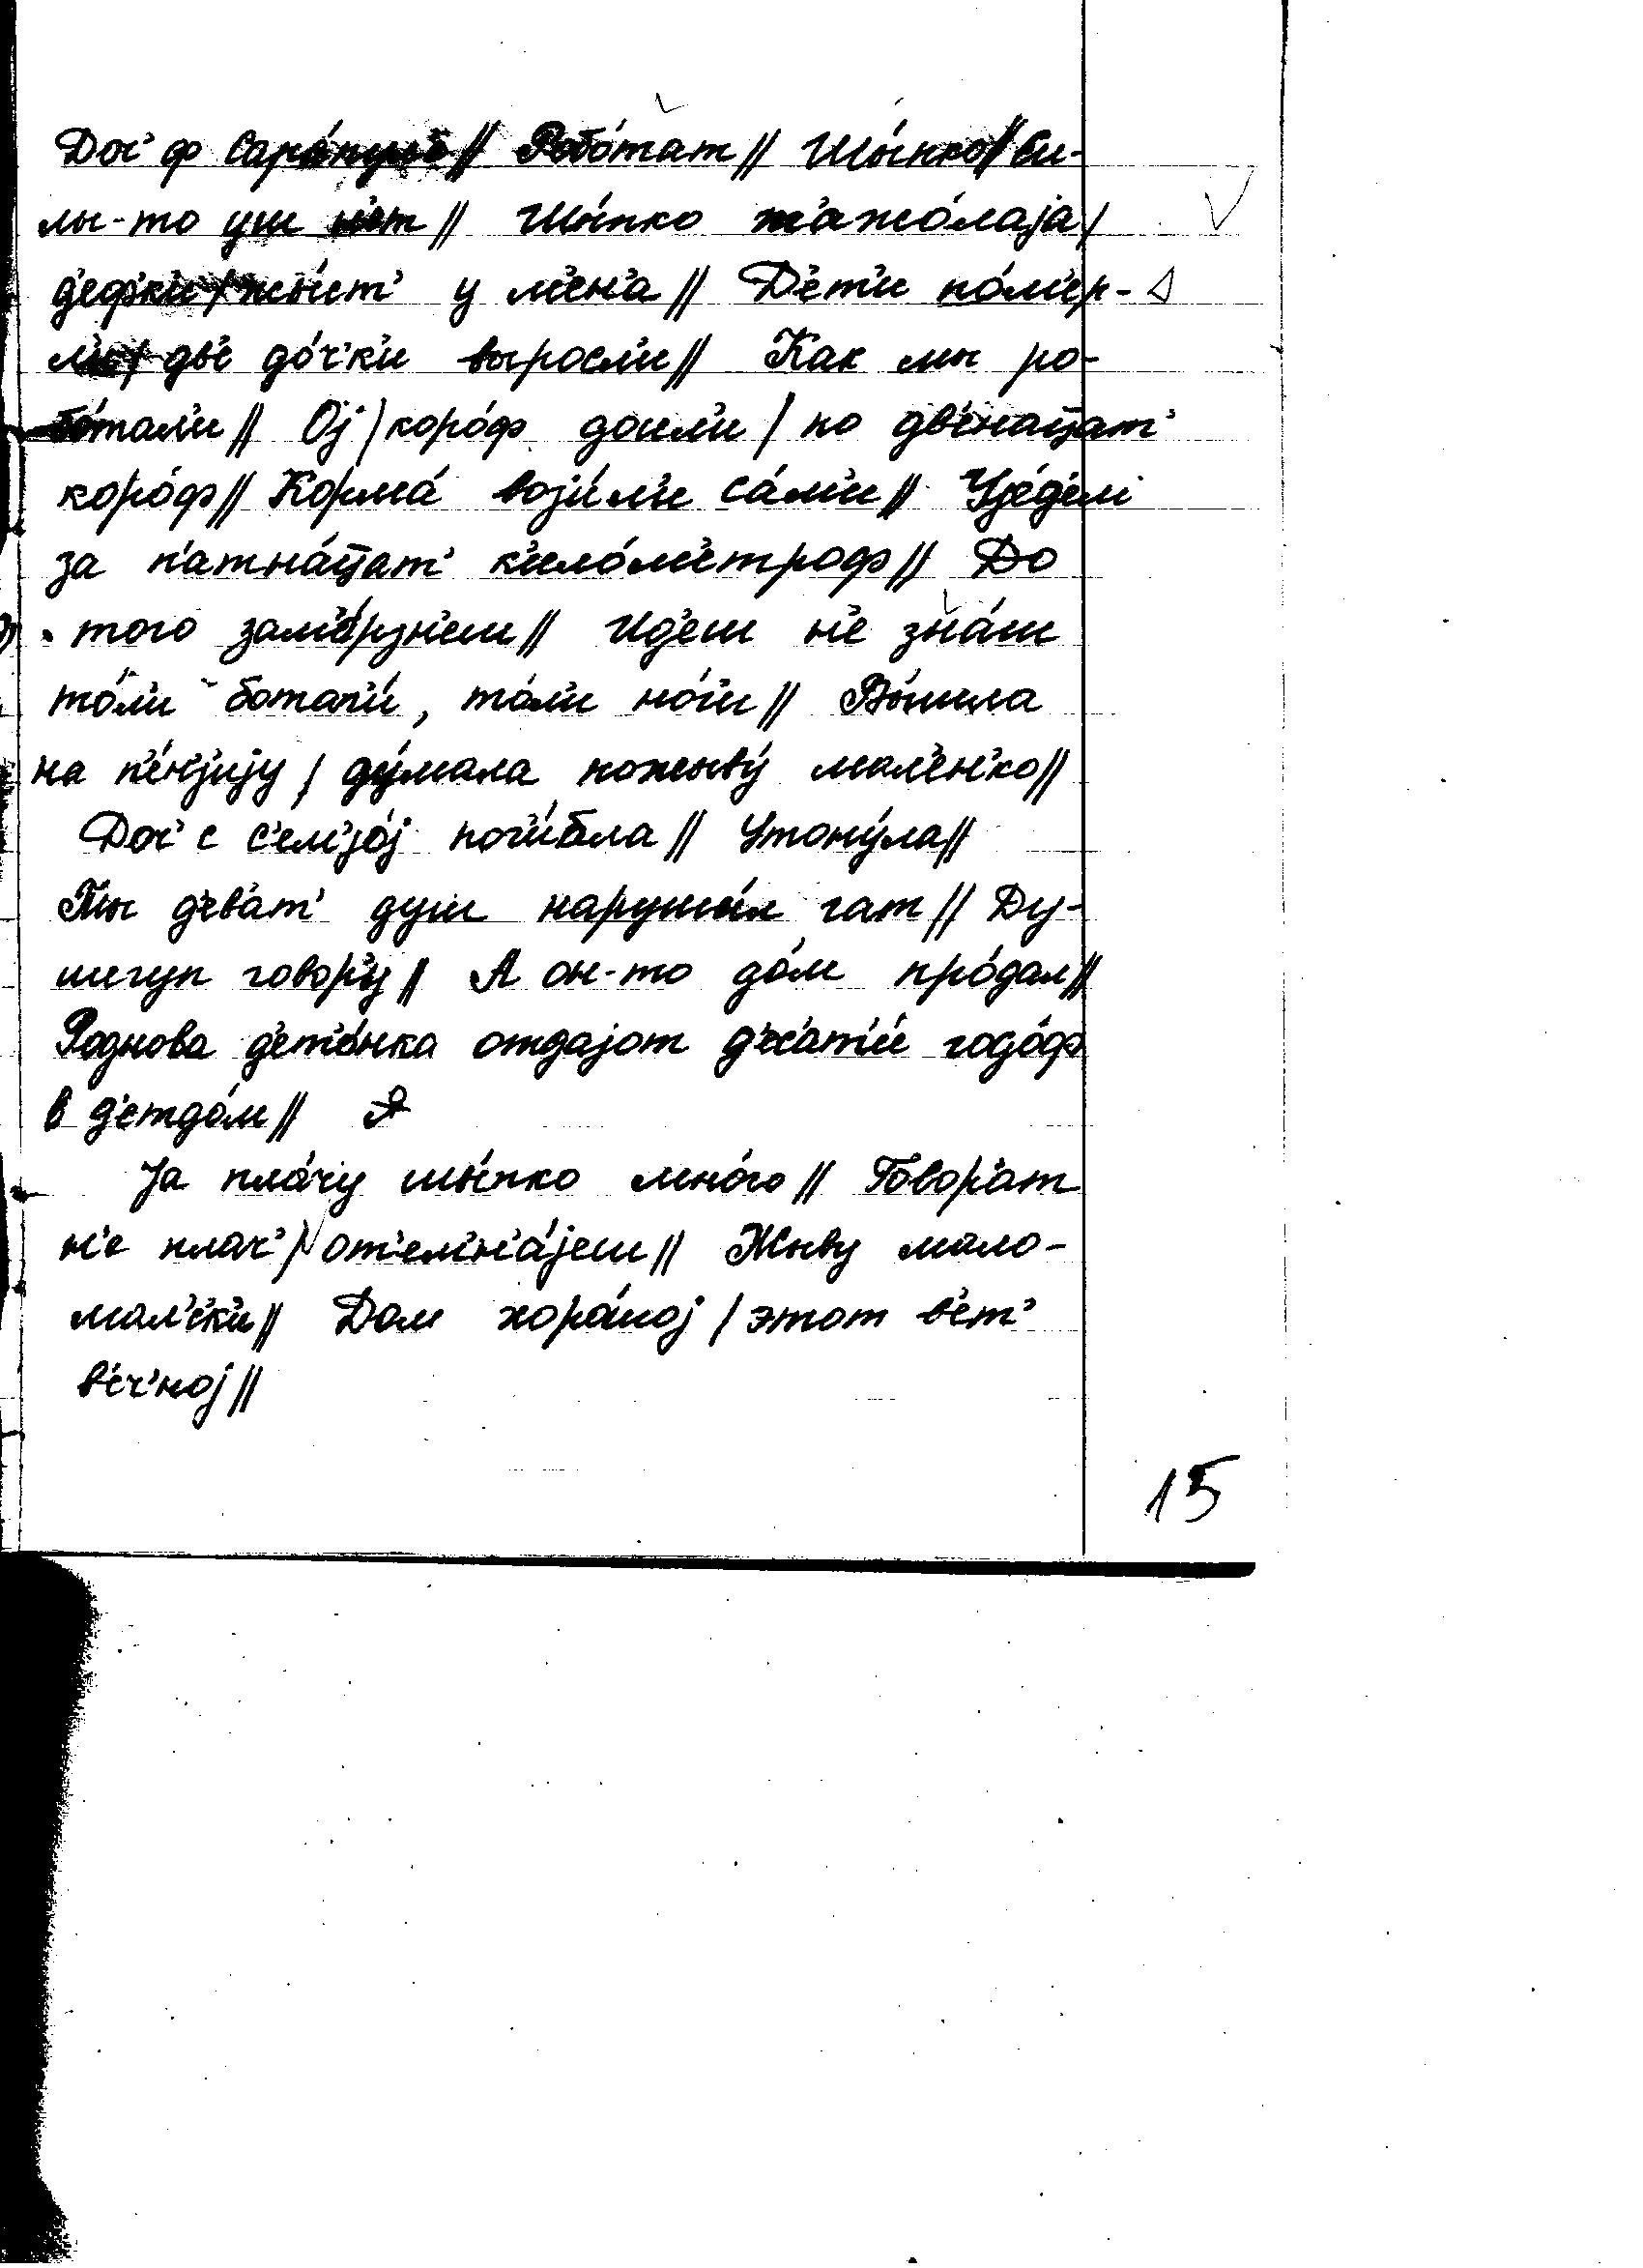 Доч' ф Сара́пул'е // Робо́тат // Шы́пко // Си-
лы-то уш н'ет // Шы́пко т'ажо́лаја /
д'е́фк'и / жыст' у м'ен'а // Д'е́т'и по́м'ер-
л'и / дв'е до́ч'к'и выросл'и // Как мы ро-
бо́тал'и // Ој / коро́ф доил'и / по дв'ена́ц̄ат'
коро́ф // Корма́ воз'и́л'и са́м'и // Ујед'ем
за п'атна́ц̄ат' к'ило́м'етроф // До
того зам'о́рзн'ем // Ид'еш н'е зна́ш
то́л'и ботаг'и́, то́л'и но́г'и // Вы́шла
на п'е́нз'ију / ду́мала пожыву́ мал'ен'ко //
Доч' с с'ем'јо́ј пог'и́бла // Утону́ла //
Мы д'е́в'ат' душ наруши́л гат // Ду-
шегуп говор'у // А он-то до́м про́дал //
Роднова д'ет'о́нка отдајот д'ес'ат'и́ годо́ф
в д'етдо́м //
Ја пла́чу шы́пко мно́го // Говор'ат
н'е плач' / от'емн'а́јеш // Жыву мало-
мал'ск'и // Дом хоро́шој / этот в'ет'
в'е́ч'ној //
15